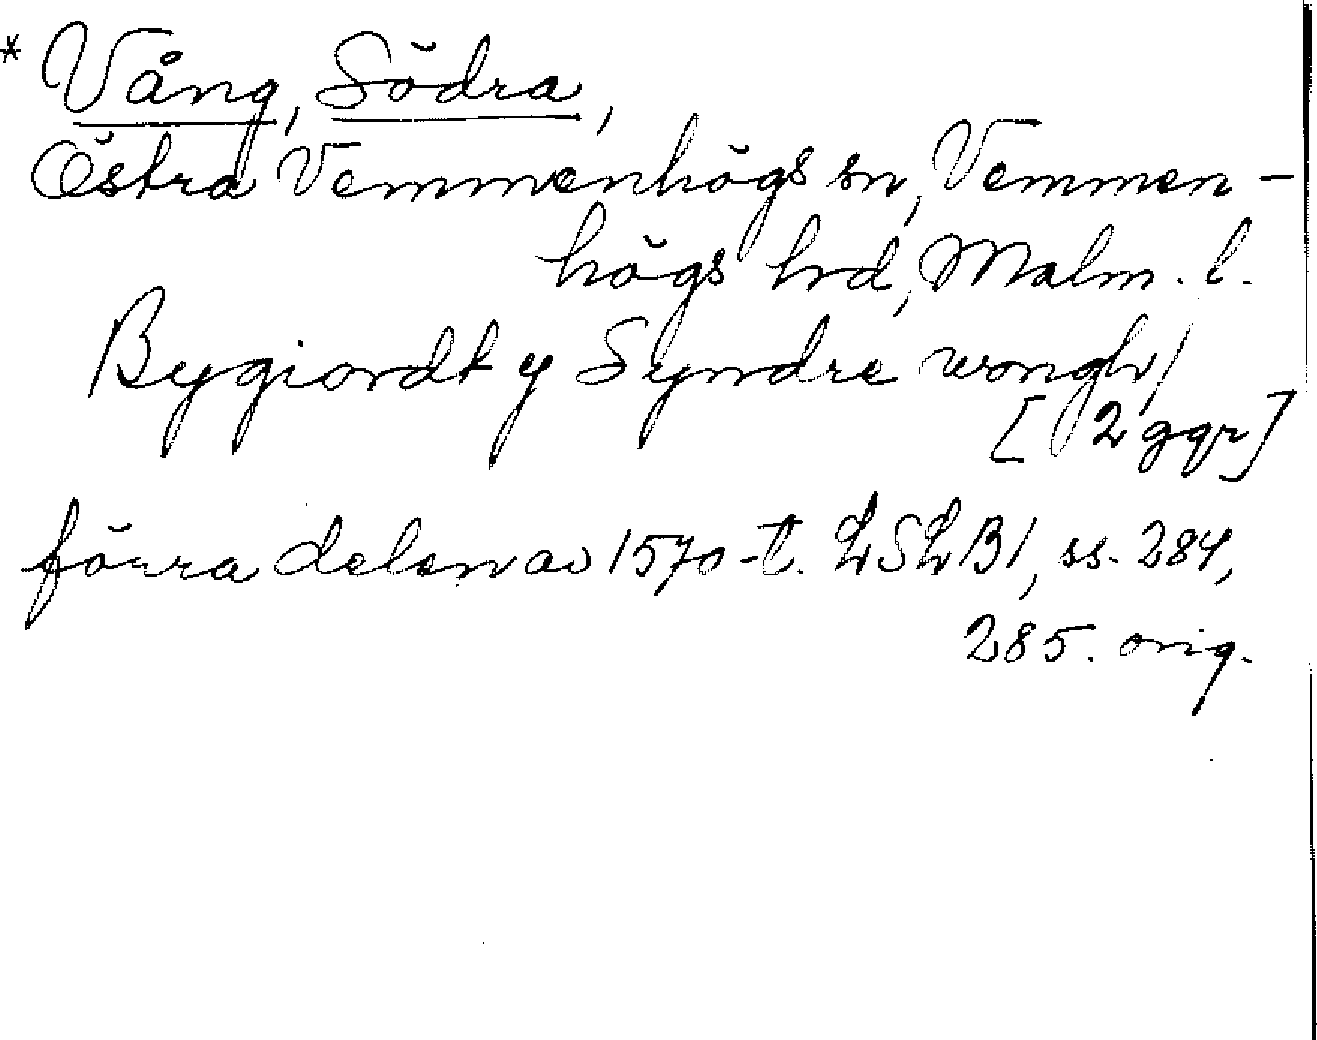 * Vång, Södra,
Östra Vemmenhögs sn, Vemmen-
högs hrd, Malm. l.
Bygiordt y Syndre wongh/
[2 ggr]
förra delen av 1570-t. LSLB1, ss. 284,
285. orig.